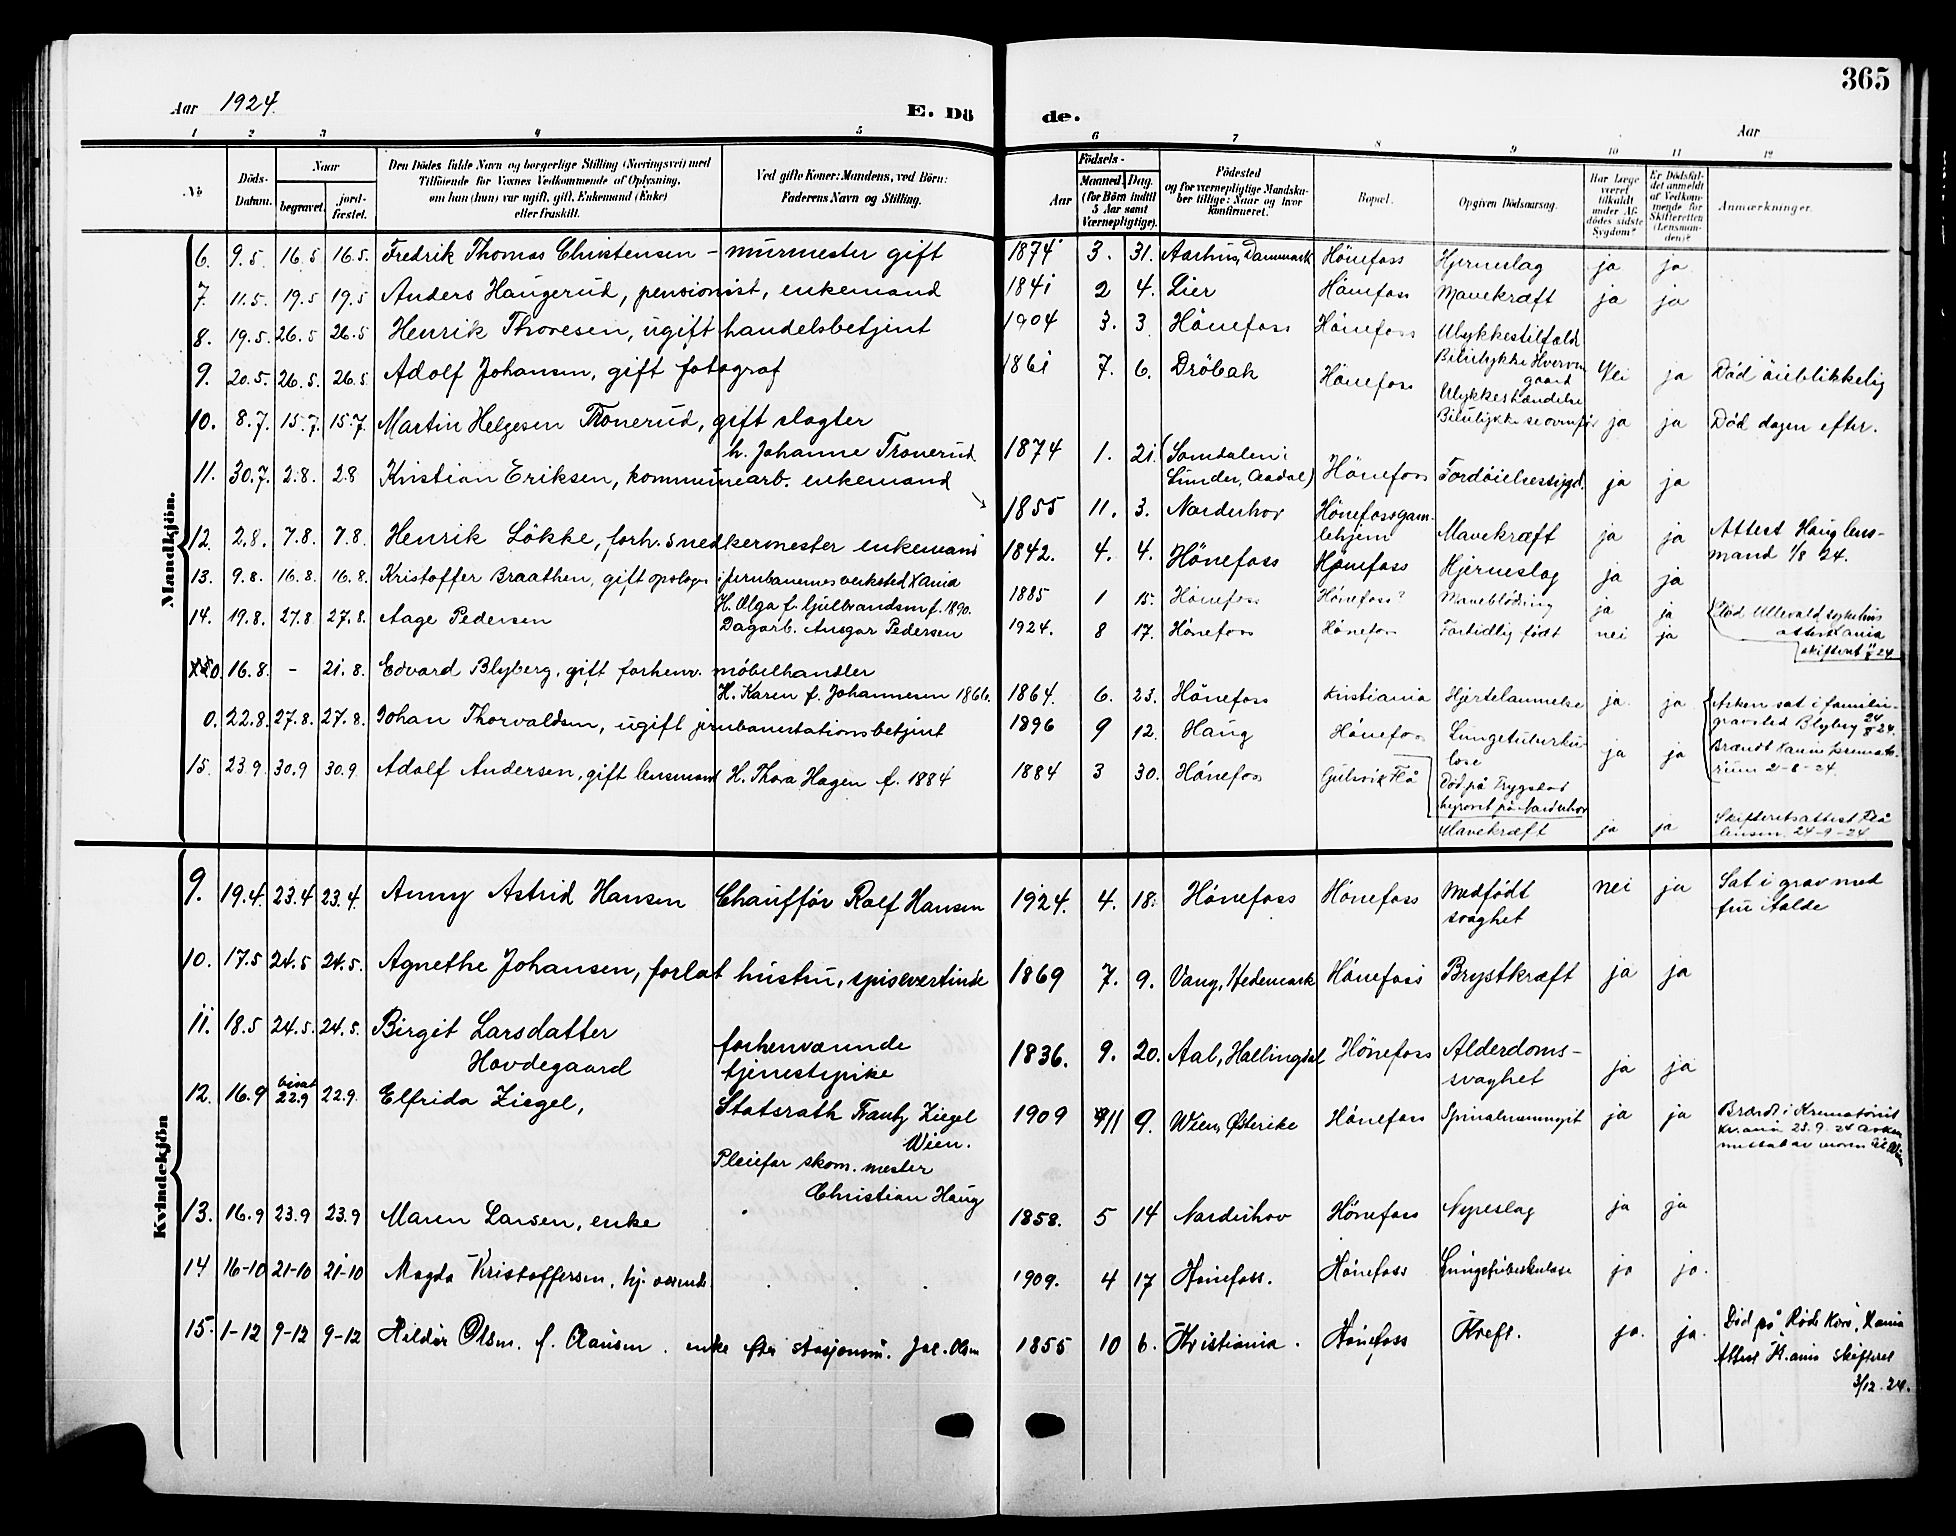 365
Aar 1924.
E. Dö de.
Aar
1 2 3 4 5 6 7 8 9 10 11 12
No
Döds-Datum.
Naar
begravet. jordfæstet.
Den Dödes fulde Navn og borgerlige Stilling (Næringsvei) med
Tilföiende for Voxnes Vedkommende af Oplysning,
om han (hun) var ugift, gift, Enkemand (Enke)
eller fraskilt.
Ved gifte Koner: Mandens, ved Börn:
Faderens Navn og Stilling.
Aar
Födsels-
Maaned. Dag.
(for Börn indtil
5 Aar samt
Værnepligtige).
Födested
og for værnepligtige Mandsku-
ber tillige: Naar og hvor
konfirmeret.
Bopæl.
Opgiven Dödsaarsag.
Har Læge
været
tilkaldt
under Af-
dödes sidste
Sygdom?
Er Dödsfal-
det anmeldt
af Vedkom-
mende for
Skifteretten
(Lensman-
den)?
Anmærkninger.
Mandkjön.
6. 9.5. 16.5 16.5. Fredrik Thomas Christensen - murmester gift 1874 3. 31. Aarhus, Danmark Hönefoss Hjerneslag ja ja
7. 11.5. 19.5 19.5 Anders Haugerud, pensionist, enkemand 1841 2 4. Lier Hönefoss Mavekræft ja ja
8. 19.5. 26.5 26.5 Henrik Thoresen, ugift handelsbetjent 1904 3. 3 Hönefoss Hönefoss Ulykkestilfælde
Bilulykke Hvervengaard Nei ja Död öieblikkelig
9. 20.5. 26.5. 26.5. Adolf Johansen, gift fotograf 1861 7. 6. Dröbak Hönefoss Ulykkeshændelse
Bilulykke se ovenfor ja ja Död dagen efter.
10. 8.7. 15.7. 15.7. Martin Helgesen Tronerud, gift slagter
h. Johanne Tronerud 1874 1. 21. (Somdalen i
Lunder, Aadal) Hönefoss Fordöielsessygd. ja ja
11. 30.7. 2.8. 2.8 Kristian Eriksen, kommunearb. enkemand 1855 11. 3. Norderhov Hönefossgam-
lehjem Mavekræft ja ja Attest Haug lens-
mand 1/8 24.
12. 2.8. 7.8. 7.8. Henrik Lökke, forh. snedkermester enkemand 1842. 4. 4. Hönefoss Hönefoss Hjerneslag ja ja
13. 9.8. 16.8. 16.8. Kristoffer Braathen, gift i jernbanenes verksted Kania
H. Olga f. Gulbrandsen f. 1890. 1885 1 15. Hönefoss Hönefoss? Maveblödning ja ja Död Ullevold sykehus
attest Kania
skifteret 24
14. 19.8. 27.8 27.8. Aage Pedersen Dagarb. Ansgar Pedersen 1924. 8 17. Hönefoss Hönefoss Fortidlig födt nei ja
0. 16.8. - 21.8. Edvard Blyberg, gift forhenv. möbelhandler
H. Karen f. Johannesen 1866. 1864. 6. 23. Hönefoss Kristiania Hjertelammelse ja ja Asken sat i familie-
gravsted Blyberg 24/8 24.
Brændt Kania Kremato-
rium 21-8-24.
0. 22.8. 27.8. 27.8. Johan Thorvaldsen, ugift jernbanestationsbetjent 1896 9 12. Haug Hönefoss Lungetuberku-
lose ja ja
Död på Trygstad
begravet på Norderhov
15. 23.9. 30.9 30.9. Adolf Andersen, gift lensmand H. Thora Hagen f. 1884 1884 3 30. Hönefoss Gulsvik Flå Mavekræft ja ja Skifteretsattest Flå
lensm. 24-9-24
Kvindekjön
9. 19.4. 23.4 23.4. Anny Astrid Hansen Chauffør Rolf Hansen 1924. 4. 18. Hönefoss Hönefoss Medfödt
svaghet nei ja Sat i grav med
fru
10. 17.5 24.5 24.5. Agnethe Johansen, forlat hustru, spisevertinde 1869 7. 9. Vang, Hedemark Hönefoss Brystkræft ja ja
11. 18.5 24.5. 24.5. Birgit Larsdatter
Hovdegaard forhenværende
tjenestepike 1836. 9. 20. Aal, Hallingdal Hönefoss Alderdoms-
svaghet ja ja
12. 16.9 bisat
22.9 22.9. Elfrida Ziegel, Statsrath Frantz Ziegel
Wien.
Pleiefar skom. mester
Christian Haug 1909 11 9. Wien, Østerike Hönefoss ja ja Brændt i Krematoriet
Kr.ania 23.9.24 Asken
13. 16.9 23.9 23.9 Maren Larsen, enke 1858. 5 14 Norderhov Hönefoss Nyreslag ja ja
14 16-10 21-10 21-10 Magda Kristoffersen, hj. værende 1909. 4 17 Hönefoss. Hönefoss Lungetuberkulose ja ja.
15. 1-12 9-12 9-12 Hildur Olsen. f. Clausen. enke efter stasjonsm. Joh. Olsen 1855 10 6. Kristiania. Hönefoss Kreft. ja. ja. Död på "Röde Kors", Kania
Attest Kr.ania skifteret
3/12.24.